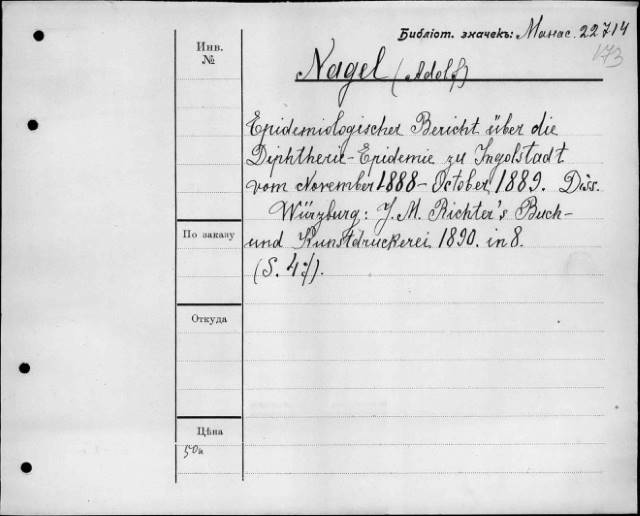 Библіот. значекъ: Манас. 22714
173
Инв.
№
Nagel (Adolf)
Epidemiologischer Bericht über die
Diphtherie-Epidemie zu Ingolstadt
vom November 1888 - October 1889. Diss.
Würzburg: J. M. Richter's Buch-
und Kunstdruckerei 1890. in 8.
По заказу
Откуда
Цѣна
50к